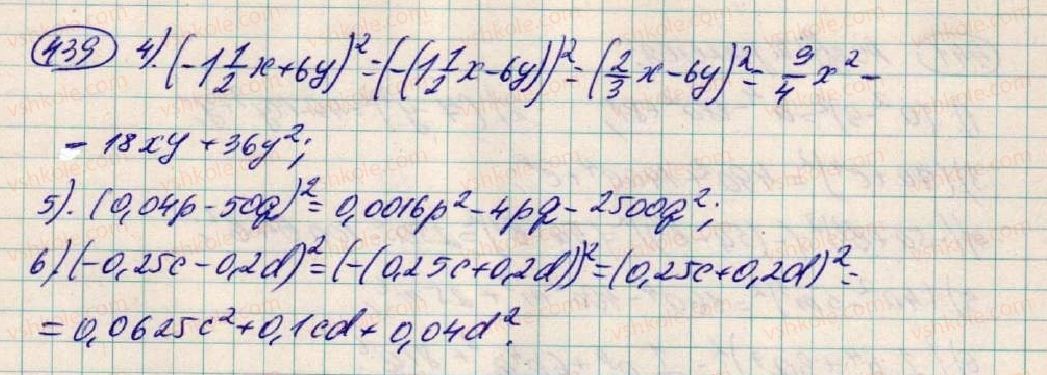 439 4). (-1 1/2 x + 6y)² = (-(1 1/2 x - 6y))² = (2/3 x - 6y)² = 9/4 x² -
- 18xy + 36y²;
5). (0,04p - 50q)² = 0,0016p² - 4pq - 2500q²;
6) (-0,25c - 0,2d)² = (-(0,25c + 0,2d))² = (0,25c + 0,2d)² =
= 0,0625c² + 0,1cd + 0,04d².